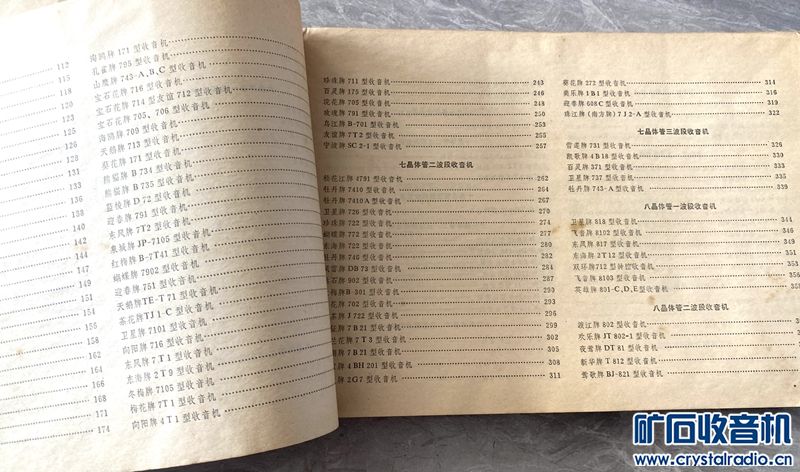 112
115
118
119
120
123
126
128
130
132
133
134
138
140
142
144
147
149
151
154
156
158
162
164
166
168
171
174
海鸥牌 171 型收音机
孔雀牌 795 型收音机
山鹰牌 745-A、B、C 型收音机
宝石花牌 716 型收音机
宝石花牌 714 型友谊 712 型收音机
宝石花牌 705、706 型收音机
海鸥牌 709 型收音机
天鹅牌 713 型收音机
葵花牌 171 型收音机
熊猫牌 B 734 型收音机
熊猫牌 B 735 型收音机
蓝棱牌 D 72 型收音机
迎春牌 791 型收音机
东风牌 7T2 型收音机
泉城牌 JP-7105 型收音机
红梅牌 B-7T41 型收音机
蝴蝶牌 7902 型收音机
迎春牌 751 型收音机
天鹅牌TE-T 71 型收音机
茶花牌TJ1-C 型收音机
卫星牌 7101 型收音机
向阳牌 716 型收音机
东风牌 7T1 型收音机
东海牌 2T9 型收音机
冬梅牌 7105 型收音机
梅花牌 7T1 型收音机
向阳牌 4T1 型收音机
珍珠牌 711 型收音机 243
百灵牌 175 型收音机 246
珑花牌 705 型收音机 248
玫瑰牌 791 型收音机 250
乌江牌 B-701 型收音机 253
友谊牌 7T2 型收音机 255
宁波牌 SC 2-1 型收音机 257
七晶体管二波段收音机
松花江牌 4791 型收音机 262
牡丹牌 7410 型收音机 264
牡丹牌 7410A 型收音机 267
卫星牌 726 型收音机 270
珍珠牌 722 型收音机 274
蝴蝶牌 772 型收音机 277
东海牌 722 型收音机 280
牡丹牌 746 型收音机 282
DB 73 型收音机 286
石牌 902 型收音机 290
梅牌 B 301 型收音机 293
花牌 702 型收音机 295
茶牌 J 722 型收音机 296
牌 7B21 型收音机 299
花牌 7T3 型收音机 302
牌 7B21 型收音机 305
牌 4BH 201 型收音机 308
牌 2G7 型收音机 311
葵花牌 272 型收音机 314
美乐牌 1B1 型收音机 316
迎春牌 608C 型收音机 319
珠江牌(南方牌)7J2-A 型收音机 322
七晶体管三波段收音机
雪莲牌 731 型收音机 326
凯歌牌 4B18 型收音机 330
百灵牌 371 型收音机 333
卫星牌 737 型收音机 335
牡丹牌 743-A 型收音机 339
八晶体管一波段收音机
卫星牌 818 型收音机 344
飞音牌 8102 型收音机 346
东风牌 817 型收音机 349
东海牌 2T12 型收音机 351
双环牌 712 型钟控收音机 353
飞音牌 8103 型收音机
英雄牌 801-C、D、E型收音机
八晶体管二波段收音机
渡江牌 802 型收音机
欢乐牌 JT 802-1 型收音机
夜莺牌 DT 81 型收音机
新华牌 T 812 型收音机
莺歌牌 BJ-821 型收音机
矿石收音机
www.crystalradio.cn